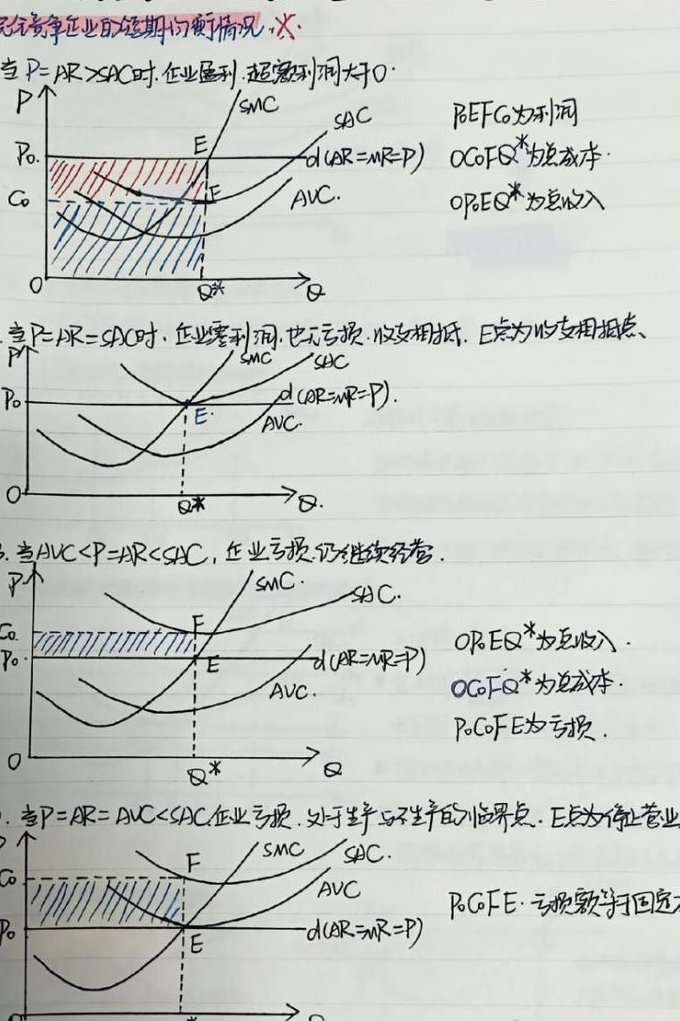 完全竞争企业的短期均衡情况.※.
当P=AR>SAC时.企业盈利.超额利润大于0.
P
SMC
SAC
E
P₀
d(AR=MR=P)
F
C₀
AVC.
O
Q*
Q
P₀EFC₀为利润
OC₀FQ*为总成本.
OP₀EQ*为总收入
.当P=AR=SAC时.企业零利润.也无亏损.收支相抵.E点为收支相抵点、
P
SMC
SAC
P₀
d(AR=MR=P).
E.
AVC.
O
Q*
Q.
3.当AVC<P=AR<SAC,企业亏损.仍继续经营.
P
SMC.
SAC.
C₀
F
P₀.
E
d(AR=MR=P)
AVC.
O
Q*
Q
OP₀EQ*为总收入.
OC₀FQ*为总成本.
P₀C₀FE为亏损.
.当P=AR=AVC<SAC.企业亏损.处于生产与不生产的临界点.E点为停止营业
SMC
SAC.
F
C₀
AVC
P₀
d(AR=MR=P)
E
P₀C₀FE.亏损额等于固定